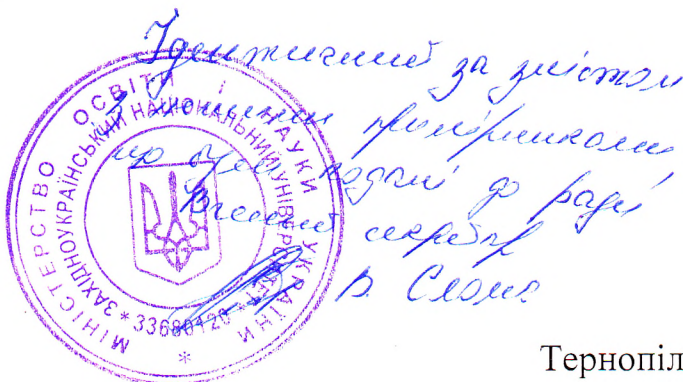 Ідентичний за змістом
з іншими примірниками
що були подані до ради
Вчений секретар
МІНІСТЕРСТВО ОСВІТИ І НАУКИ УКРАЇНИ
ЗАХІДНОУКРАЇНСЬКИЙ НАЦІОНАЛЬНИЙ УНІВЕРСИТЕТ
* 33680120 *
*
Тернопіл